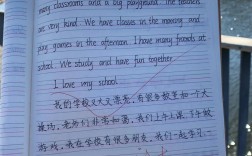 many classrooms and a big playground. The teachers
are very kind. We have classes in the morning and
play games in the afternoon. I have many friends at
school. We study and have fun together.
I love my school.
我的学校又大又漂亮,有很多教室和一个大
操场,老师们非常和蔼,我们上午上课,下午做
游戏,我在学校有很多朋友,我们一起学习